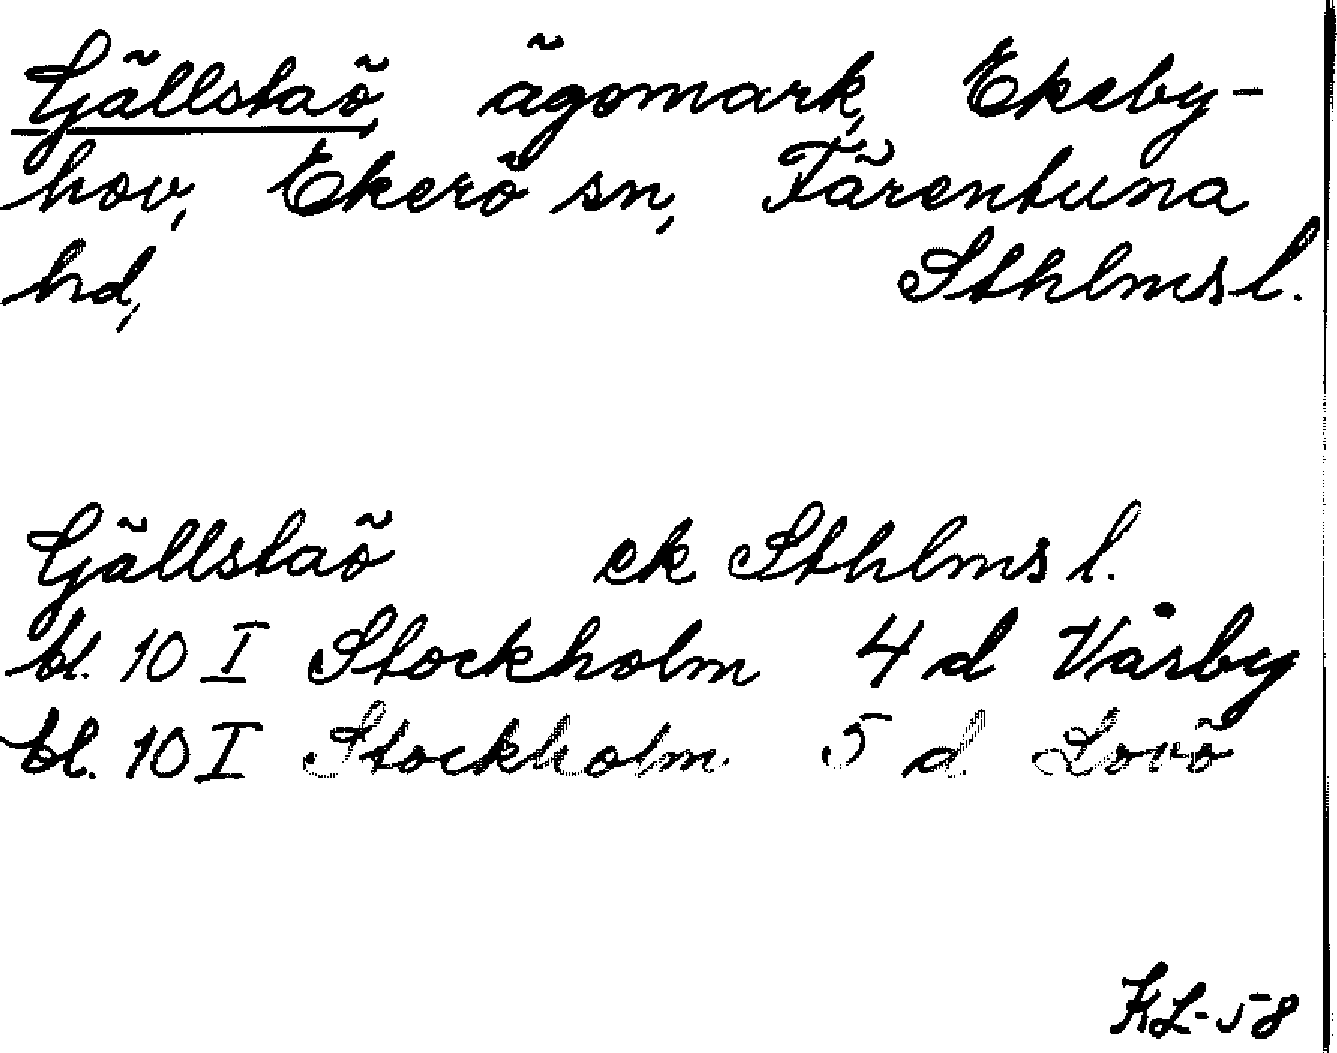 Gällstaö, ägomark, Ekeby-
hov, Ekerö sn, Färentuna
hd, Sthlms l.
Gällstaö ek Sthlms l.
bl. 10 I Stockholm 4 d Vårby
bl. 10 I Stockholm 5 d Lovö
KL-58